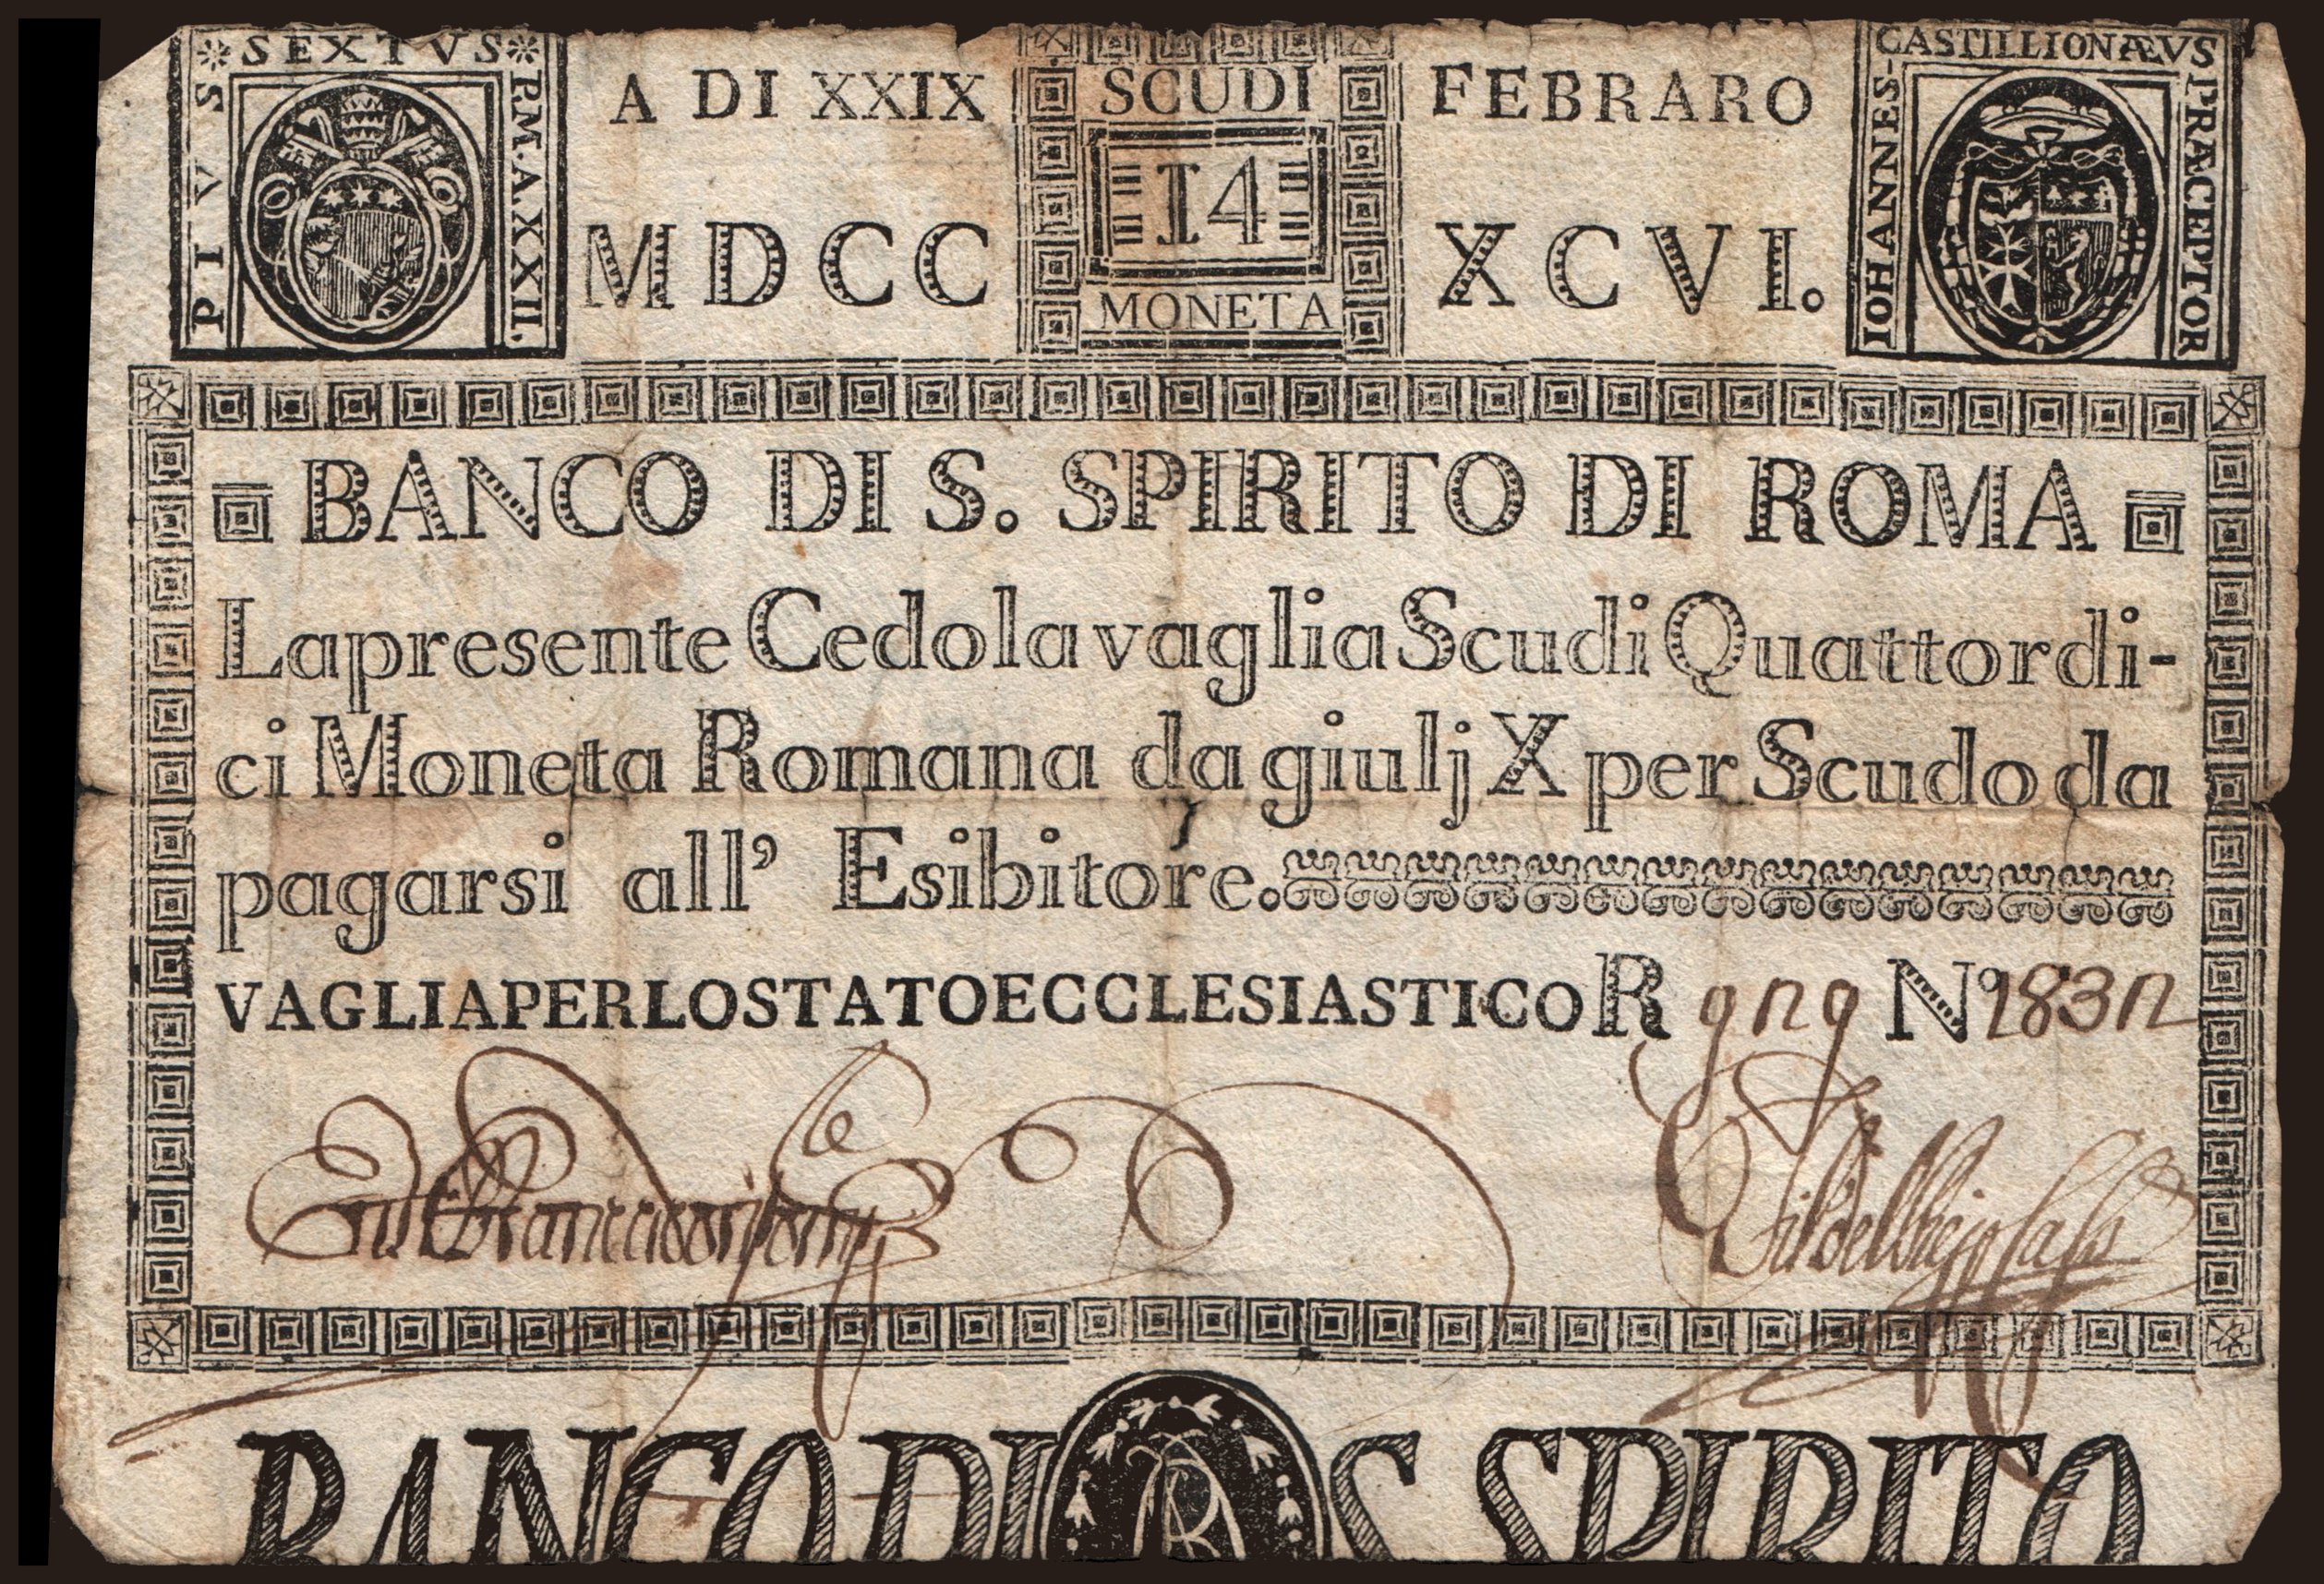 PIVS * SEXTVS * P.M.A.XXII.
A DI XXIX FEBRARO
MDCC XCVI.
SCUDI
14
MONETA
IOHANNES CASTILLIONÆVS PRÆCEPTOR
BANCO DI S. SPIRITO DI ROMA
La presente Cedola vaglia Scudi Quattordi-
ci Moneta Romana da giulj X per Scudo da
pagarsi all' Esibitore.
VAGLIA PER LO STATO ECCLESIASTICO R N°
BANCO DI S. SPIRITO